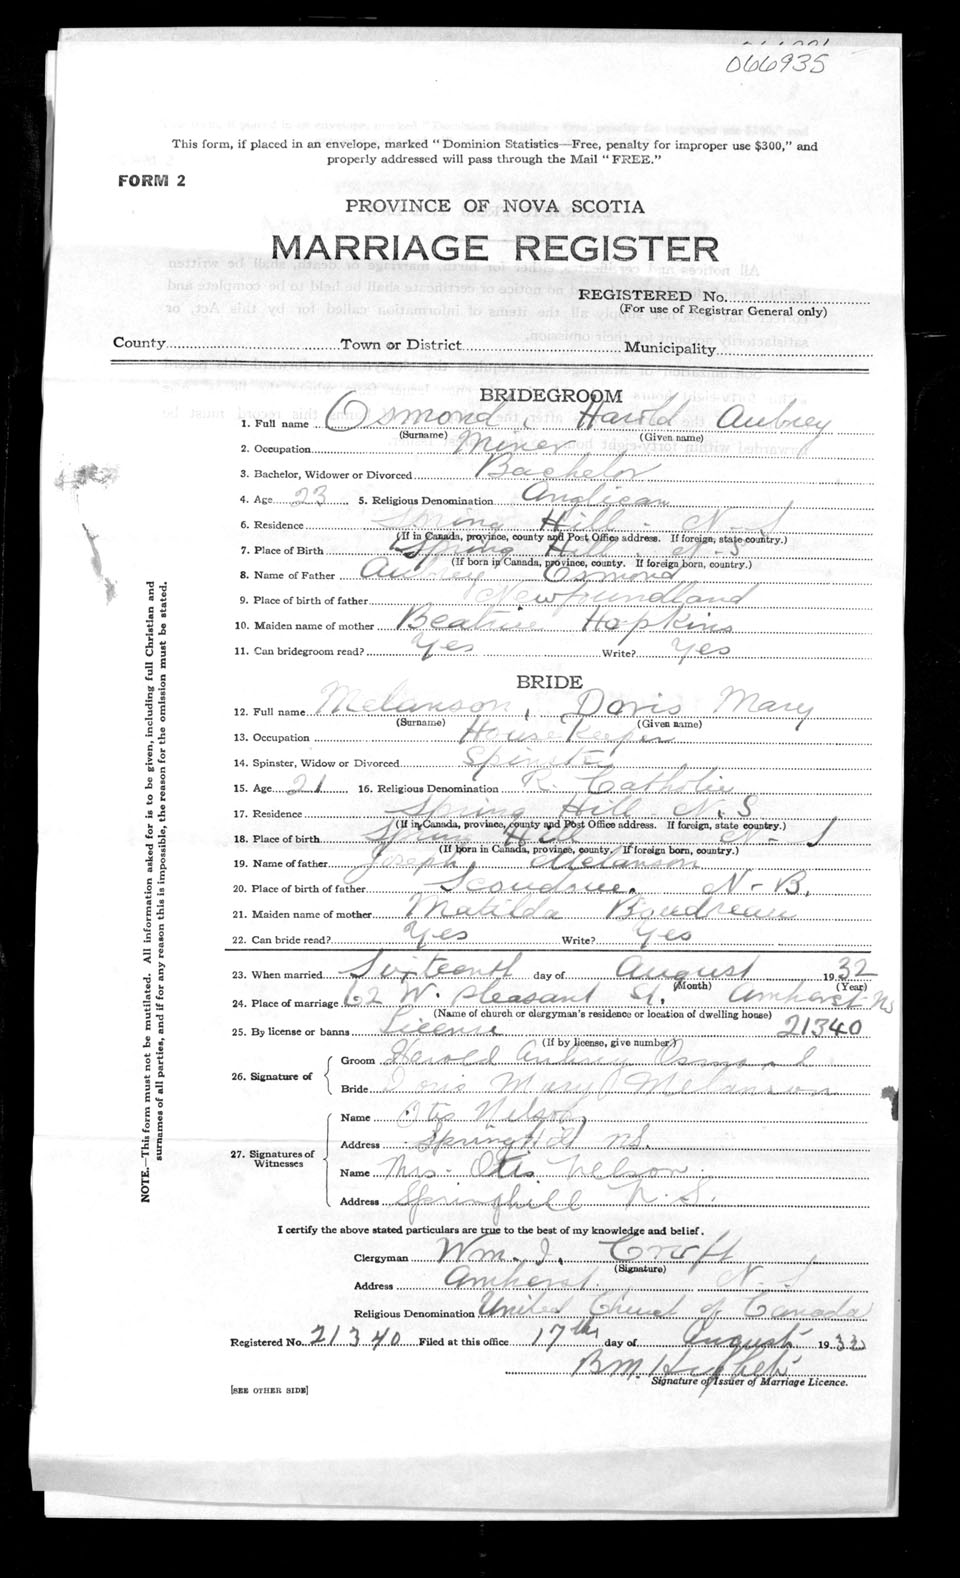 066935
This form, if placed in an envelope, marked "Dominion Statistics—Free, penalty for improper use $300," and
properly addressed will pass through the Mail "FREE."
FORM 2
PROVINCE OF NOVA SCOTIA
MARRIAGE REGISTER
REGISTERED No.
(For use of Registrar General only)
County Town or District Municipality
BRIDEGROOM
1. Full name Osmond, Harold Aubrey
(Surname) (Given name)
2. Occupation Miner
3. Bachelor, Widower or Divorced Bachelor
4. Age 23 5. Religious Denomination Anglican
6. Residence Spring Hill - N-S
(If in Canada, province, county and Post Office address. If foreign, state country.)
7. Place of Birth Spring Hill. N-S
(If born in Canada, province, county. If foreign born, country.)
8. Name of Father Aubrey Osmond
9. Place of birth of father Newfoundland
10. Maiden name of mother Beatrice Hopkins
11. Can bridegroom read? Yes Write? Yes
BRIDE
12. Full name Melanson, Doris Mary
(Surname) (Given name)
13. Occupation House Keeper
14. Spinster, Widow or Divorced Spinster
15. Age 21 16. Religious Denomination R. Catholic
17. Residence Spring Hill N.S
(If in Canada, province, county and Post Office address. If foreign, state country.)
18. Place of birth Spring Hill N-S
(If born in Canada, province, county. If foreign born, country.)
19. Name of father Joseph Melanson
20. Place of birth of father N-B.
21. Maiden name of mother Matilda Boudreau
22. Can bride read? Yes Write? Yes
23. When married Sixteenth day of August 1932
(Month) (Year)
24. Place of marriage 62 W. Pleasant St. Amherst NS
(Name of church or clergyman's residence or location of dwelling house)
25. By license or banns License 21340
(If by license, give number.)
26. Signature of
Groom Harold Aubrey Osmond
Bride Doris Mary Melanson
27. Signatures of Witnesses
Name Otis Nelson
Address Springhill NS.
Name Mrs. Otis Nelson
Address Springhill N.S.
I certify the above stated particulars are true to the best of my knowledge and belief.
Clergyman Wm. J. Croft
(Signature)
Address Amherst. N.S
Religious Denomination United Church of Canada
Registered No. 21340 Filed at this office 17th day of August 1932
B.M.
Signature of Issuer of Marriage Licence.
[SEE OTHER SIDE]
NOTE.—This form must not be mutilated. All information asked for is to be given, including full Christian and
surnames of all parties, and if for any reason this is impossible, the reason for the omission must be stated.